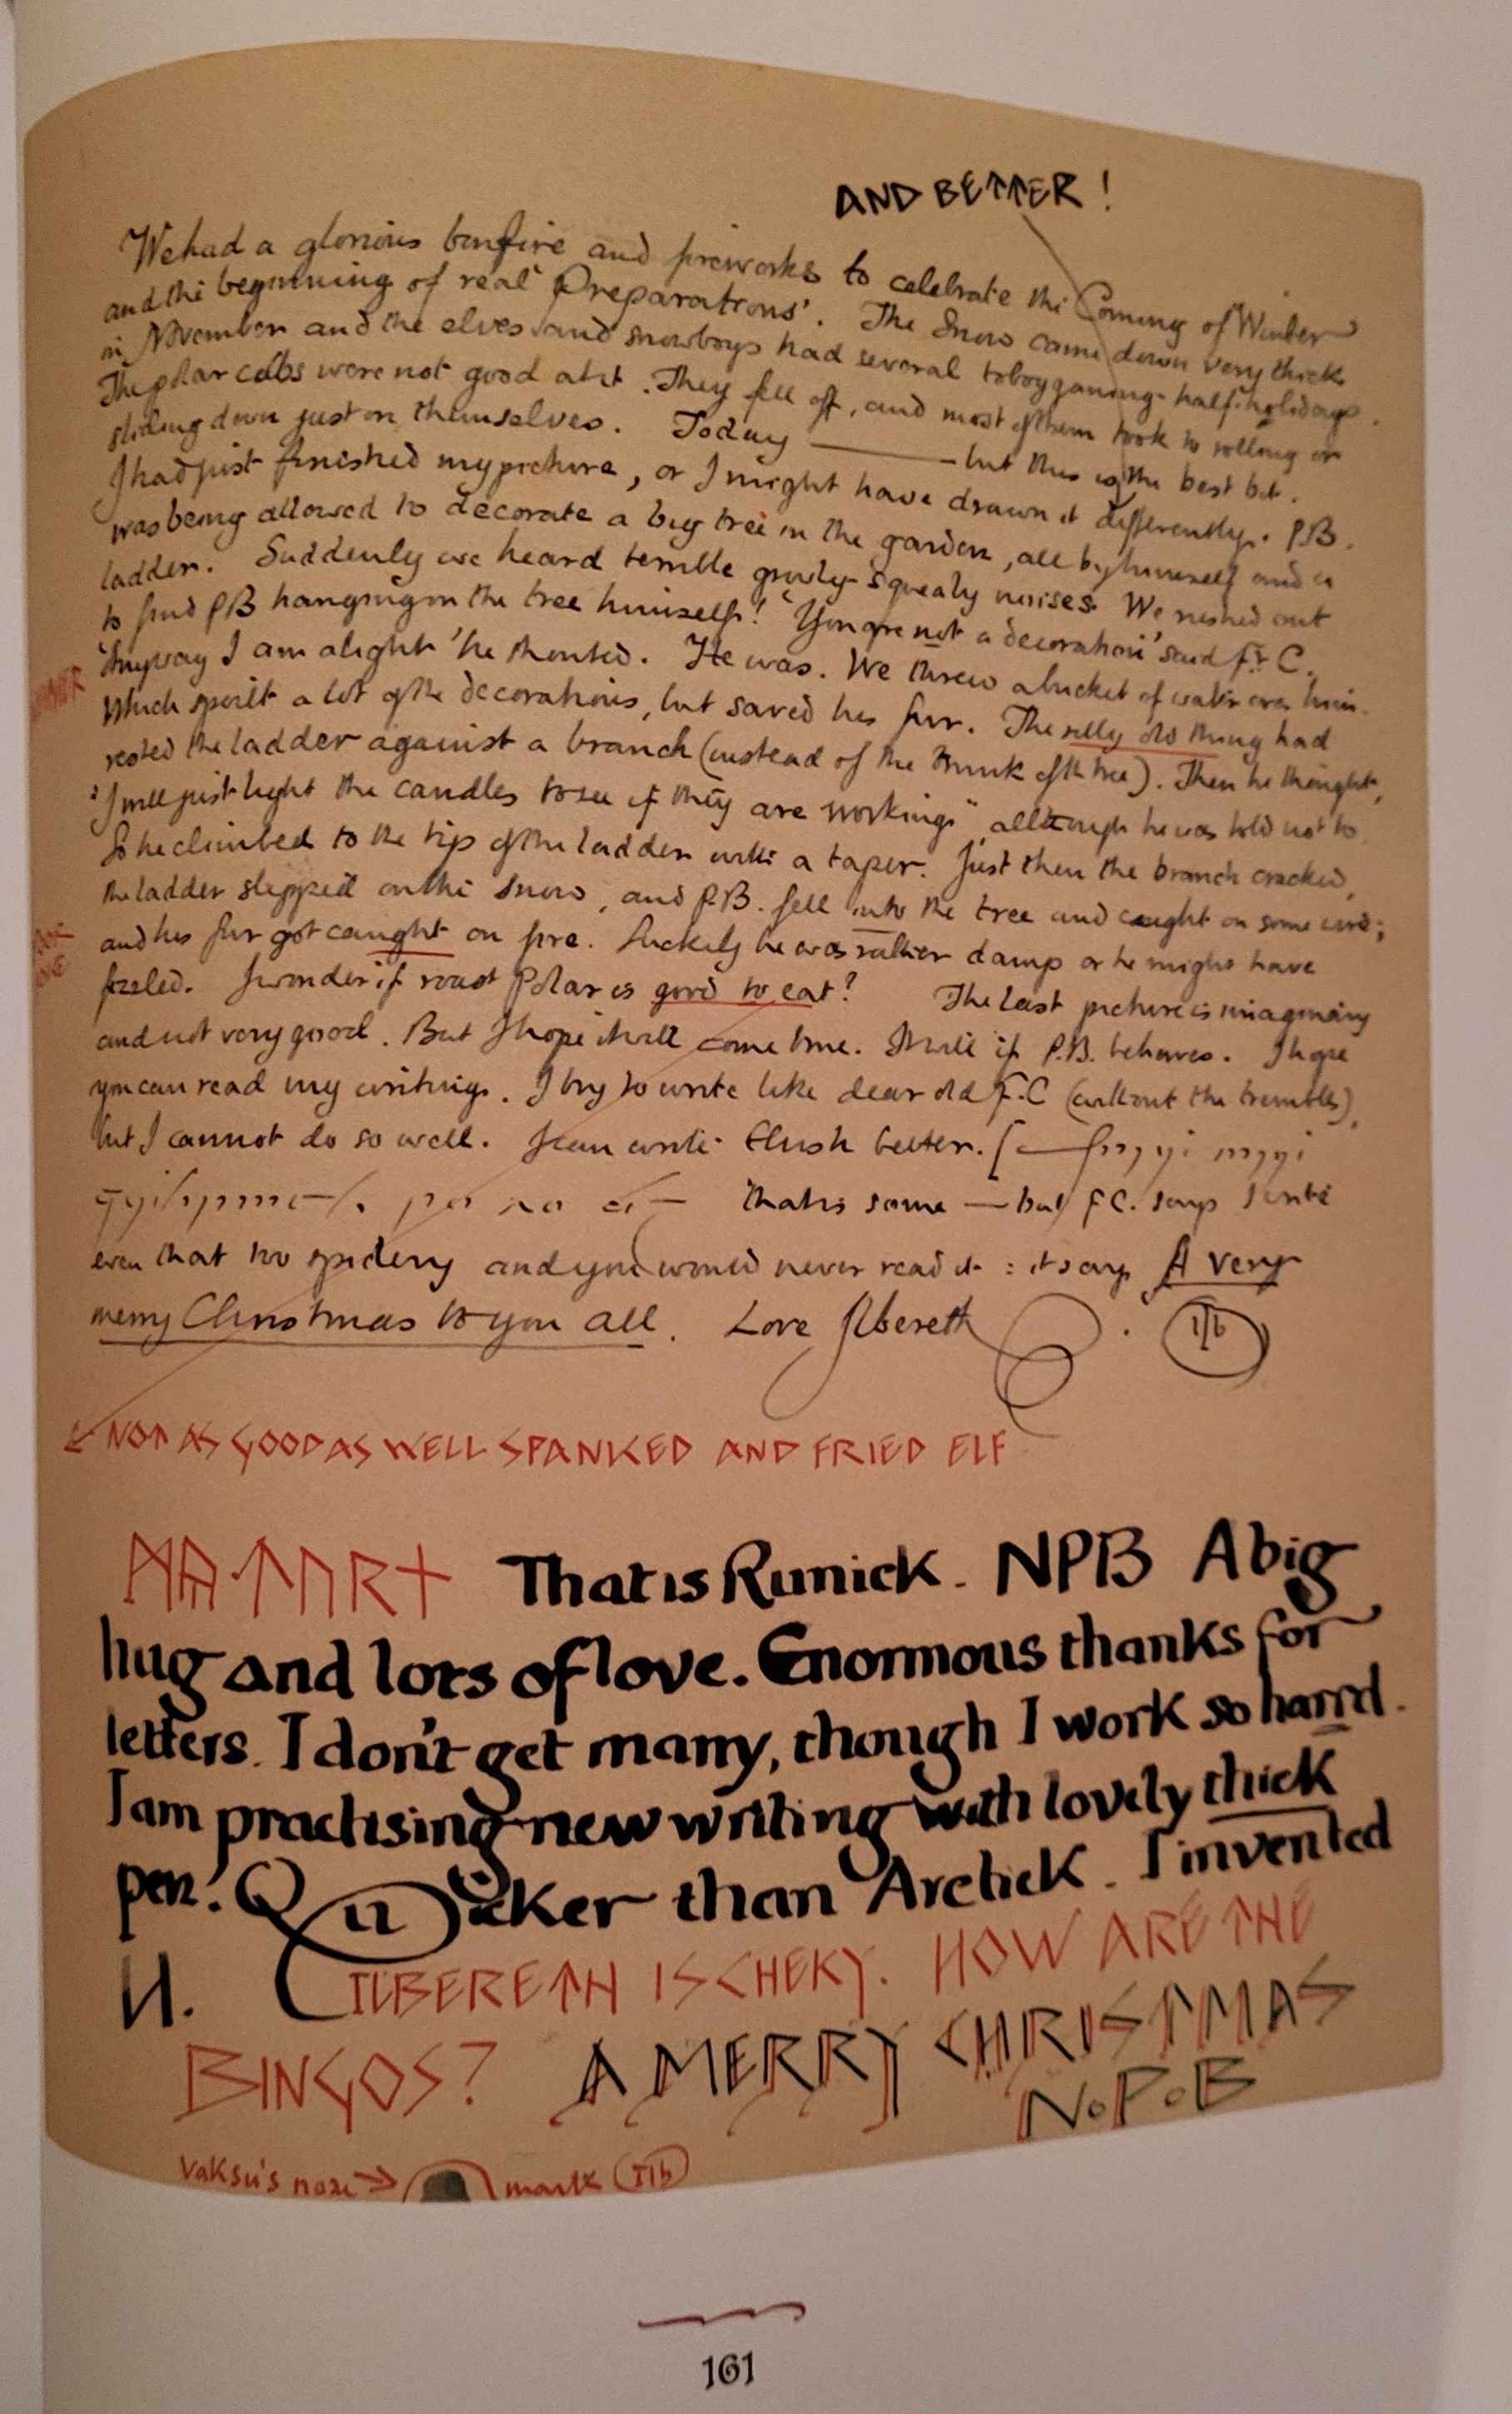 AND BETTER!
We had a glorious bonfire and fireworks to celebrate the Coming of Winter
and the beginning of real 'Preparations'. The Snow came down very thick
in November and the elves and snowboys had several tobogganing half-holidays.
The polar cubs were not good at it. They fell off, and most of them took to rolling or
sliding down just on themselves. Today —— but this is the best bit.
I had just finished my picture, or I might have drawn it differently. PB.
was being allowed to decorate a big tree in the garden, all by himself and a
ladder. Suddenly we heard terrible growly squealy noises. We rushed out
to find PB hanging on the tree himself! 'You are not a decoration' said Fr C.
'Anyway I am alight' he shouted. He was. We threw a bucket of water over him.
Which spoilt a lot of the decorations, but saved his fur. The silly old thing had
rested the ladder against a branch (instead of the trunk of the tree). Then he thought,
'I will just light the candles to see if they are working" although he was told not to.
So he climbed to the tip of the ladder with a taper. Just then the branch cracked,
the ladder slipped on the snow, and P.B. fell into the tree and caught on some wire;
and his fur got caught on fire. Luckily he was rather damp or he might have
fizzled. I wonder if roast Polar is good to eat? The last picture is imaginary
and not very good. But I hope it will come true. It will if P.B. behaves. I hope
you can read my writing. I try to write like dear old F.C (without the trembles),
but I cannot do so well. I can write Elvish better.
That is some — but F C. says I write
even that too spidery and you would never read it: it says A very
merry Christmas to you all. Love Ilbereth.
NOT AS GOOD AS WELL SPANKED AND FRIED ELF
That is Runick. NPB A big
hug and lots of love. Enormous thanks for
letters. I don't get many, though I work so harrd.
I am practising new writing with lovely thick
pen. Quicker than Arctick. I invented
it.
ILBERETH IS CHEKY. HOW ARE THE
BINGOS? A MERRY CHRISTMAS
N.P.B
Vaksu's nose → mark
161